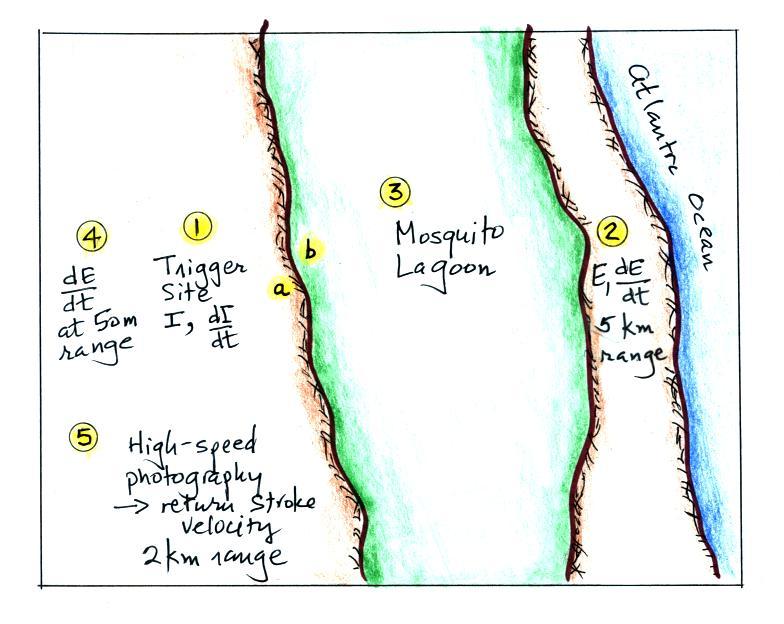 Atlantic Ocean
4
dE
dt
at 50m
range
1
Trigger
Site
I, dI
dt
b
a
3
Mosquito
Lagoon
2
E, dE
dt
5 km
range
5
High-speed
photography
→ return stroke
velocity
2 km range